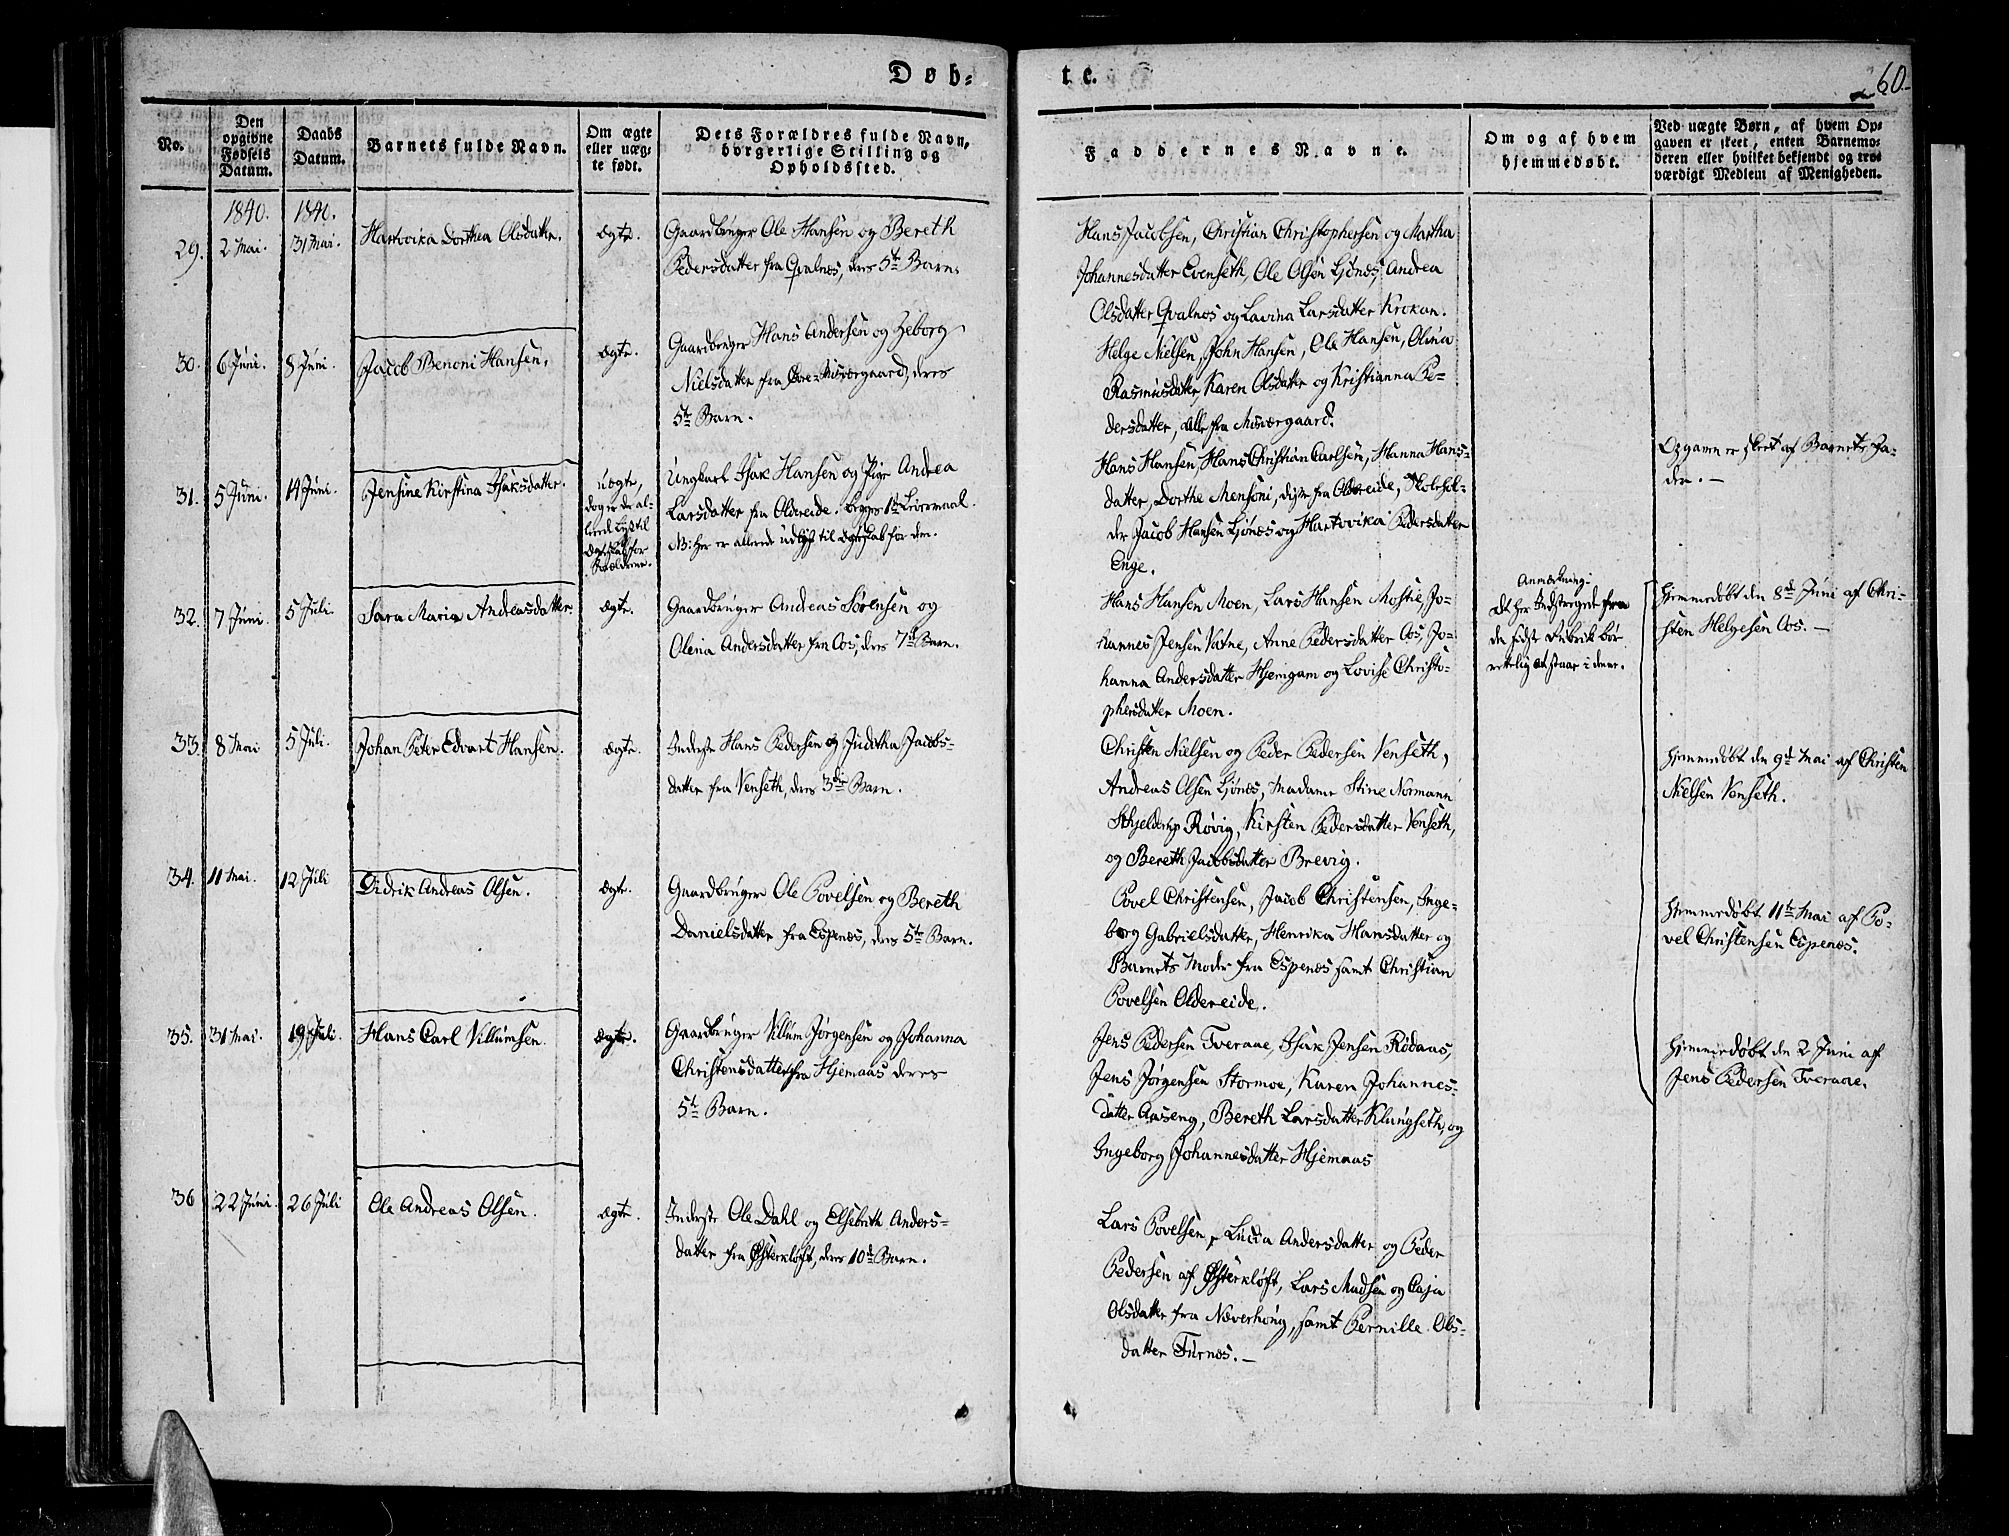 Døb-
te.
60.
No.
Den opgivne Fødsels Datum.
Daabs Datum.
Barnets fulde Navn.
Om ægte eller uæg-te født.
Dets Forældres fulde Navn, borgerlige Stilling og Opholdssted.
Faddernes Navne.
Om og af hvem hjemmedøbt.
Ved uægte Børn, af hvem Op-gaven er skeet, enten Barnemo-deren eller hvilket bekjendt og tro-værdigt Medlem af Menigheden.
1840. 1840.
29. 2 Mai. 31 Mai. Hartvika Dorthea Olsdatter. Ægte.
Gaardbruger Ole Hansen og Bereth
Pedersdatter fra Qvalnes, deres 5te Barn.
Hans Jacobsen, Christian Christophersen og Martha
Johannesdatter Evenseth, Ole Olsen Ljønes, Andrea
Olsdatter Qvalnos og Lavina Larsdatter Krokan.
30. 6 Juni. 8 Juni. Jacob Benoni Hansen. Ægte.
Gaardbruger Hans Andersen og Zeborg
Nielsdatter fra Misværgaard, deres
5te Barn.
Helge Nielsen, John Hansen, Ole Hansen, Olina
Rasmusdatter, Karen Olsdatter og Kristianna Pe-
dersdatter, alle fra Misværgaard.
31. 5 Juni. 14 Juni. Jensine Kirstina Isaksdatter.
uægte,
dog er de al-
lerede lyst til
Ægteskab for
Forældrene.
Ungkarl Isak Hansen og Pige Andrea
Larsdatter fra Oldereide. Begges 1ste Leiermaal.
NB: her er allerede udlyst til Ægteskab for dem.
Hans Hansen, Hans Christian Carlsen, Hanna Hans-
datter, Dorthe Mensoni, disse fra Oldereide, Skolehol-
der Jacob Hansen Ljønes og Hartvika Pedersdatter
Enge.
Opgaven er skeet af Barnets Fa-
der. —
32. 7 Juni. 5 Juli. Sara Maria Andreasdatter. Ægte.
Gaardbruger Andreas Sørensen og
Olina Andersdatter fra Oos, deres 7de Barn.
Hans Hansen Moen, Lars Hansen Mostie, Jo-
hannes Jensen Vatne, Anne Pedersdatter Oos, Jo-
hanna Andersdatter Hjemgam og Lovise Christo-
phersdatter Moen.
Anmærkning:
Det her Indstregede fra
den sidste Rubrik bør
rettelig at staae i denne.
Hjemmedøbt den 8de Juni af Chri-
sten Helgesen Oos. —
33. 8 Mai 5 Juli. Johan Peter Edvart Hansen. Ægte.
Inderste Hans Pedersen og Juditha Jacobs-
datter fra Venseth, deres 3die Barn.
Christen Nielsen og Peder Pedersen Venseth,
Andreas Olsen Ljønes, Madame Stine Normann
Schjelderup Røvig, Kirsten Pedersdatter Venseth,
og Bereth Jacobsdatter Brevig.
Hjemmedøbt den 9de Mai af Christen
Nielsen Venseth.
34. 11 Mai. 12 Juli Didrik Andreas Olsen. Ægte.
Gaardbruger Ole Povelsen og Bereth
Danielsdatter fra Espenæs, deres 5te Barn.
Povel Christensen, Jacob Christensen, Inge-
borg Gabrielsdatter, Henrika Hansdatter og
Barnets Moder fra Espenæs samt Christian
Povelsen Oldereide.
Hjemmedøbt 11te Mai af Po-
vel Christensen Espenæs.
35. 31 Mai. 19 Juli. Hans Carl Villumsen. Ægte.
Gaardbruger Villum Jørgensen og Johanna
Christensdatter fra Hjemaas deres
5te Barn.
Jens Pedersen Tveraae, Isak Jensen Rødaas,
Jens Jørgensen Stormoe, Karen Johannes-
datter Aaseng, Bereth Larsdatter Klungseth, og
Ingeborg Johannesdatter Hjemaas
Hjemmedøbt den 2 Juni af
Jens Pedersen Tveraae.
36 22 Juni. 26 Juli Ole Andreas Olsen. Ægte.
Inderste Ole Dahl og Elsebeth Anders-
datter fra Østerkløft, deres 10de Barn.
Lars Povelsen, Lucia Andersdatter og Peder
Pedersen af Østerkløft, Lars Madsen og Caja
Olsdatter fra Næverhoug, samt Pernille Ols-
datter Furnæs. —